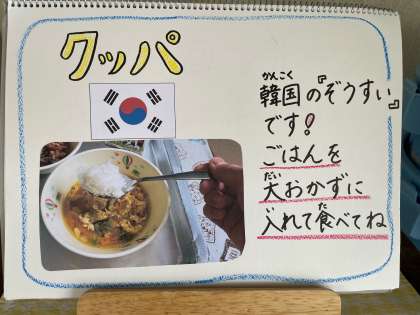 クッパ
かんこく
韓国の『ぞうすい』
です!
ごはんを
だい
大おかずに
た
入れて食べてね